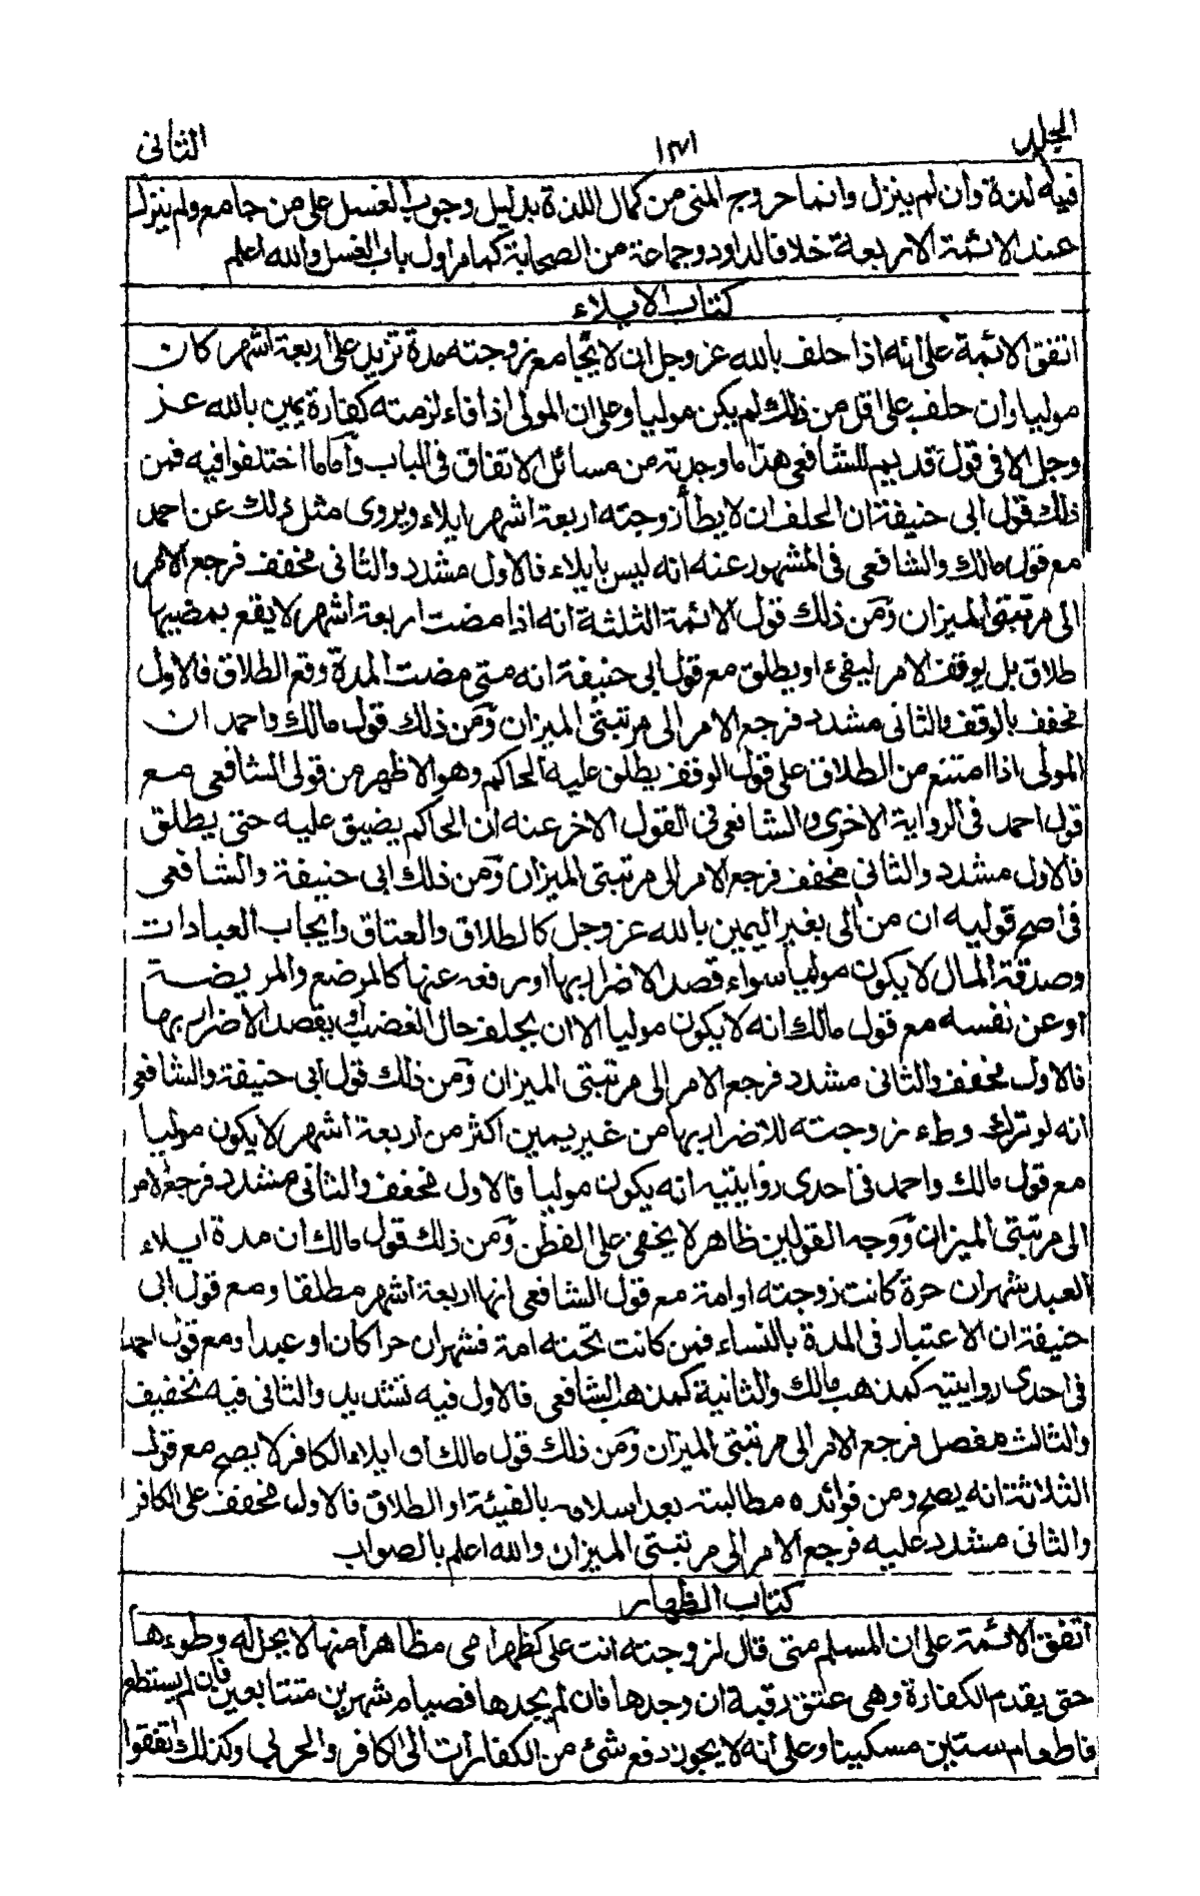 المجلد ١٣١ الثانى
فيه لذة وان لم ينزل وانما خروج المنى من كمال اللذة بدليل وجوب الغسل على من جامع ولم ينزل
عند الائمة الاربعة خلافا لداود وجماعة من الصحابة كما مر اول باب الغسل والله اعلم
كتاب الايلاء
اتفق الائمة على انه اذا حلف بالله عز وجل ان لا يجامع زوجته مدة تزيد على اربعة اشهر كان
موليا وان حلف على اقل من ذلك لم يكن موليا وعلى ان المولى اذا فاء لزمته كفارة يمين بالله عز
وجل الا فى قول قديم للشافعى هذا ما وجدته من مسائل الاتفاق فى الباب وأما ما اختلفوا فيه فمن
ذلك قول ابى حنيفة ان الحلف ان لا يطأ زوجته اربعة اشهر ايلاء ويروى مثل ذلك عن احمد
مع قول مالك والشافعى فى المشهور عنه انه ليس بايلاء فالاول مشدد والثانى مخفف فرجع الامر
الى مرتبتى الميزان ومن ذلك قول الائمة الثلثة انه اذا مضت اربعة اشهر لا يقع بمضيها
طلاق بل يوقف الامر ليفئ او يطلق مع قول ابى حنيفة انه متى مضت المدة وقع الطلاق فالاول
مخفف بالوقف والثانى مشدد فرجع الامر الى مرتبتى الميزان ومن ذلك قول مالك واحمد ان
المولى اذا امتنع من الطلاق على قول الوقف يطلق عليه الحاكم وهو الاظهر من قولى الشافعى مع
قول احمد فى الرواية الاخرى والشافعى فى القول الاخر عنه ان الحاكم يضيق عليه حتى يطلق
فالاول مشدد والثانى مخفف فرجع الامر الى مرتبتى الميزان ومن ذلك ابى حنيفة والشافعى
فى اصح قوليه ان من الى بغير اليمين بالله عز وجل كالطلاق والعتاق وايجاب العبادات
وصدقة المال لا يكون موليا سواء قصد الاضرار بها او رفعه عنها كالمرضع والمريضة
او عن نفسه مع قول مالك انه لا يكون موليا الا ان يحلف حال الغضب او يقصد الاضرار بها
فالاول مخفف والثانى مشدد فرجع الامر الى مرتبتى الميزان ومن ذلك قول ابى حنيفة والشافعى
انه لو ترك وطء زوجته للاضرار بها من غير يمين اكثر من اربعة اشهر لا يكون موليا
مع قول مالك واحمد فى احدى روايتيه انه يكون موليا فالاول مخفف والثانى مشدد فرجع الامر
الى مرتبتى الميزان ووجه القولين ظاهر لا يخفى على الفطن ومن ذلك قول مالك ان مدة ايلاء
العبد شهران حرة كانت زوجته او امة مع قول الشافعى انها اربعة اشهر مطلقا ومع قول ابى
حنيفة ان الاعتبار فى المدة بالنساء فمن كانت تحته امة فشهران حرا كان او عبدا ومع قول احمد
فى احدى روايتيه كمذهب مالك والثانية كمذهب الشافعى فالاول فيه تشديد والثانى فيه تخفيف
والثالث مفصل فرجع الامر الى مرتبتى الميزان ومن ذلك قول مالك ان ايلاء الكافر لا يصح مع قول
الثلاثة انه يصح ومن فوائده مطالبته بعد اسلامه بالفيئة او الطلاق فالاول مخفف على الكافر
والثانى مشدد عليه فرجع الامر الى مرتبتى الميزان والله اعلم بالصواب
كتاب الظهار
اتفق الائمة على ان المسلم متى قال لزوجته انت على كظهر امى مظاهر منها لا يحل له وطوءها
حتى يقدم الكفارة وهى عتق رقبة ان وجدها فان لم يجدها فصيام شهرين متتابعين فان لم يستطع
فاطعام ستين مسكينا وعلى انه لا يجوز دفع شئ من الكفارات الى الكافر والحربى وكذلك اتفقوا